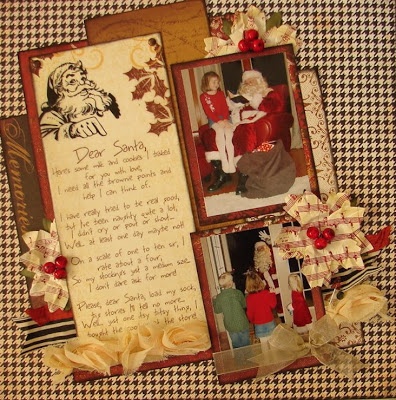 Dear Santa,
Here's some milk and cookies I baked
for you with love,
I need all the brownie points and
help I can think of.
I have really tried to be real good,
but I've been naughty quite a lot,
I don't cry or pout or shout-
Well, at least one day maybe not
On a scale of one to ten sir, I
rate about a four,
So my stocking's got a meager size
I don't dare ask for more!
Please, dear Santa, load my sock,
by stories I'll tell no more.
Well, just one itsy bitsy thing,
bought the at the store!
Memories